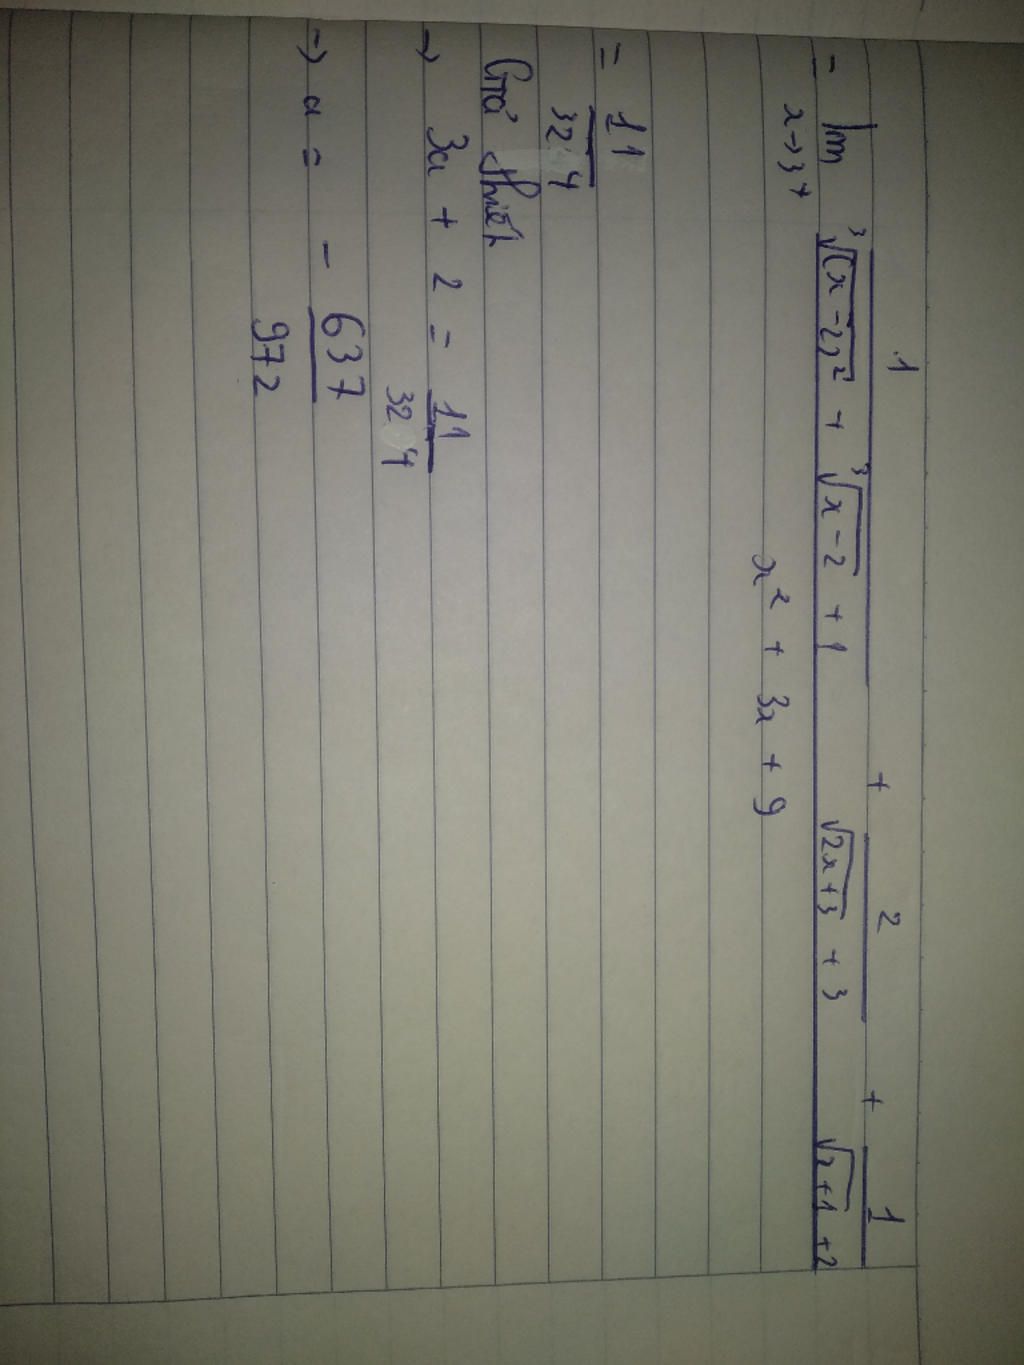 = lim x→3⁺ (1/(∛(x-2)² + ∛x-2 + 1) + 2/(√2x+3 + 3) + 1/(√x+1 + 2)) / (x² + 3x + 9)
= 11/324
Giả thiết
→ 3a + 2 = 11/324
→ a = - 637/972